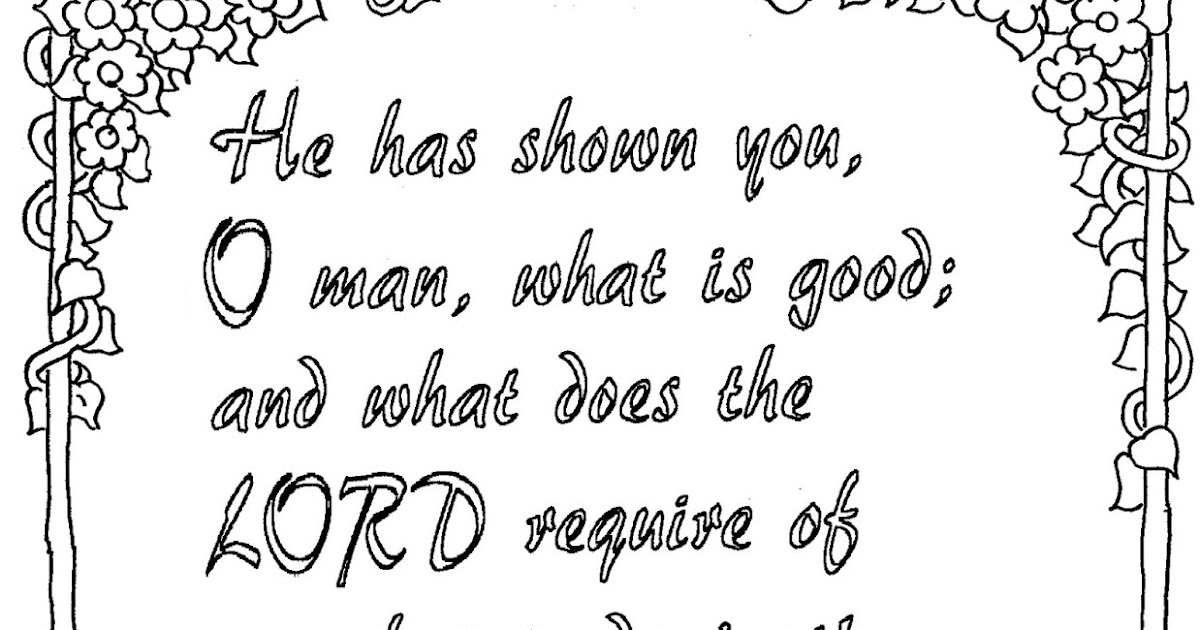 He has shown you,
O man, what is good;
and what does the
LORD require of